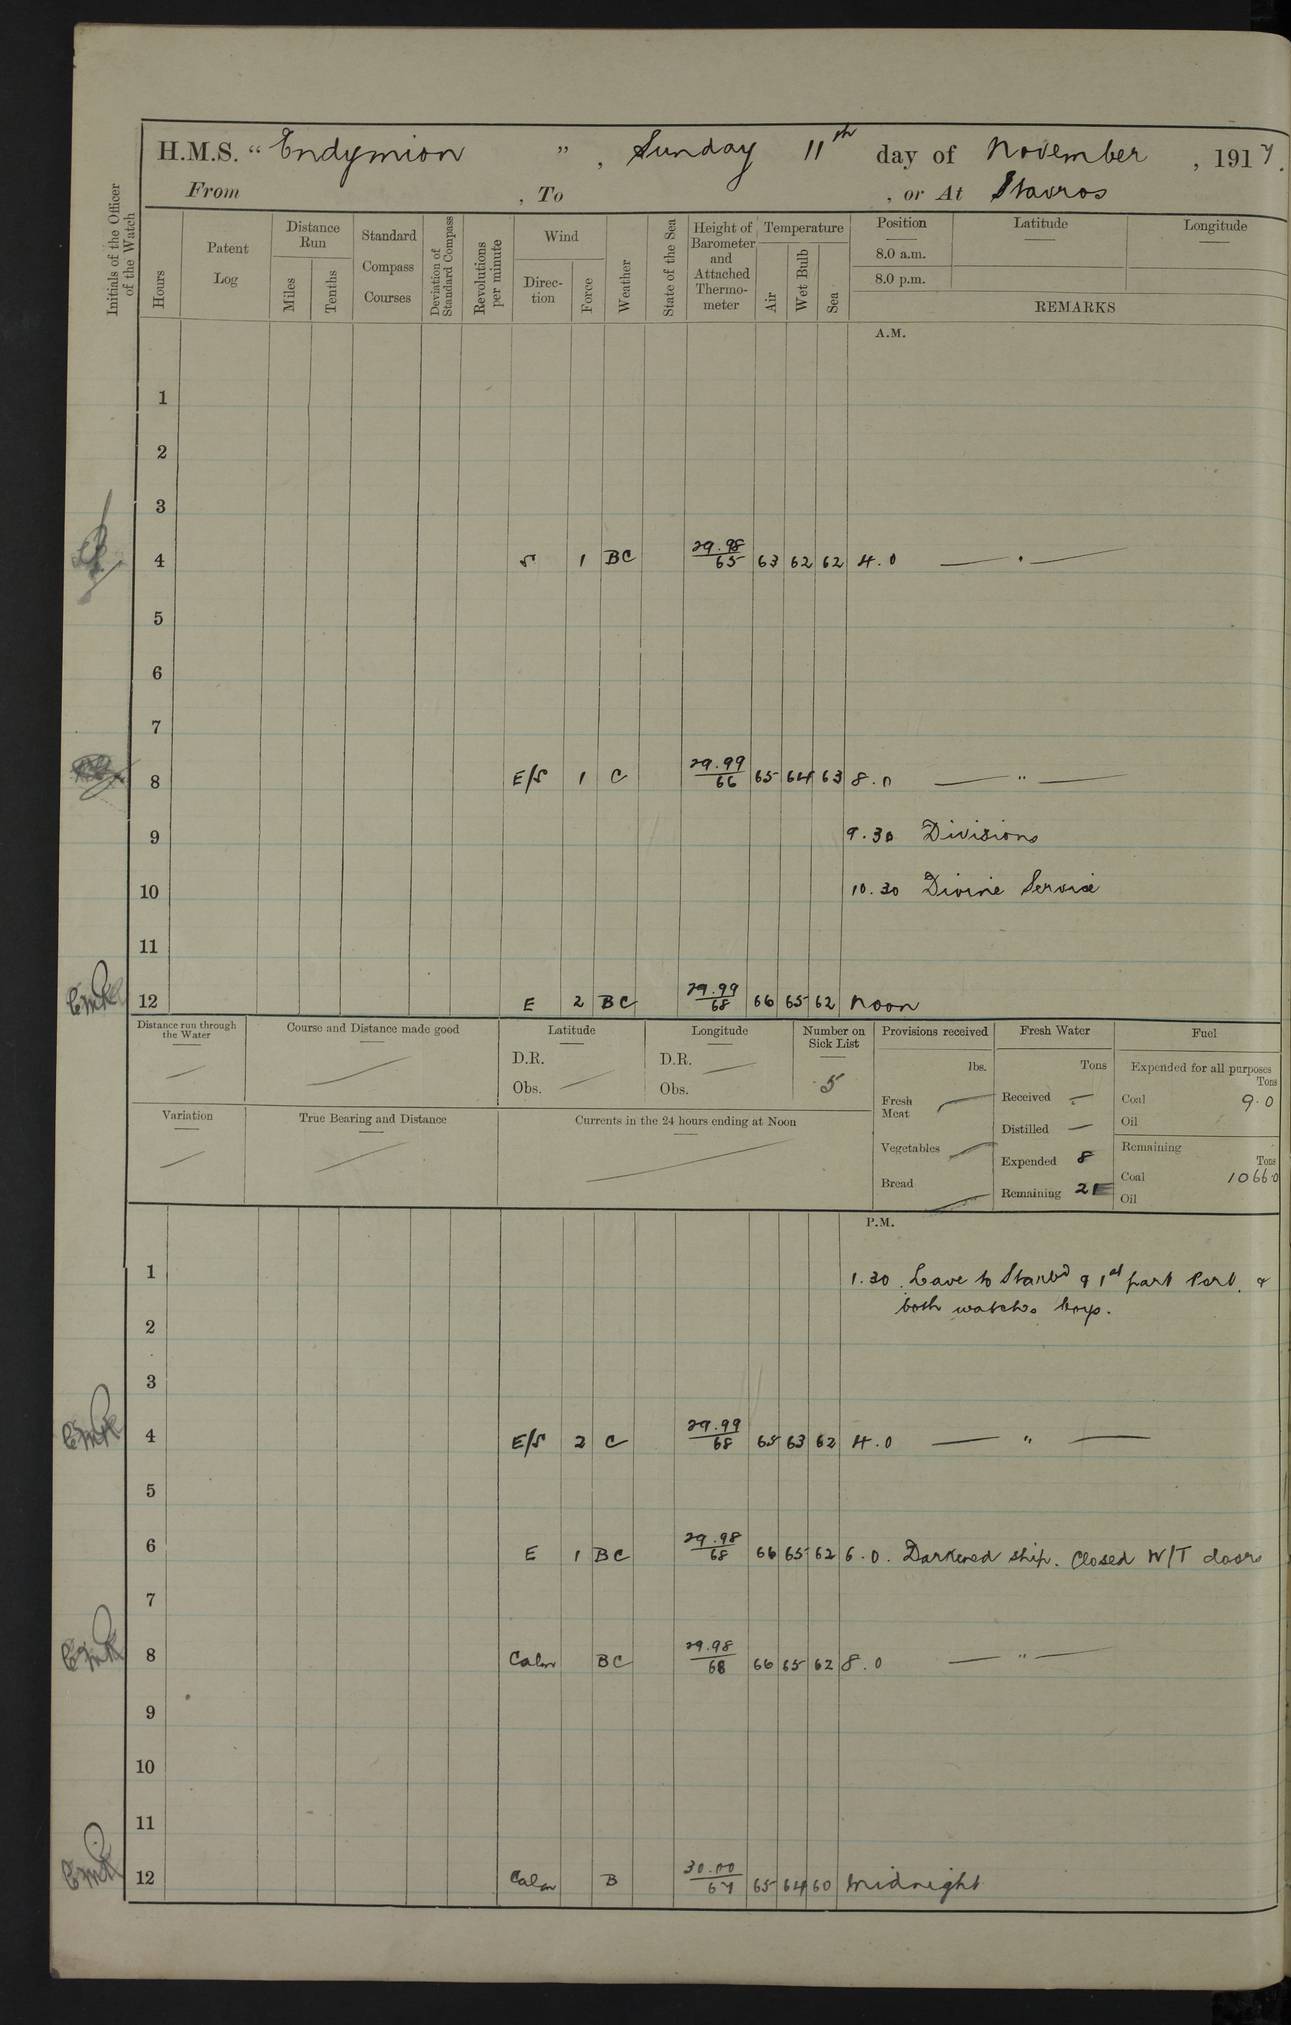 H.M.S. “ Endymion ” , Sunday 11th day of November , 1917.
From , To , or At Stavros
Initials of the Officer of the Watch
Hours
Patent Log
Distance Run
Miles
Tenths
Standard Compass Courses
Deviation of Standard Compass
Revolutions per minute
Wind
Direction
Force
Weather
State of the Sea
Height of Barometer and Attached Thermometer
Temperature
Air
Wet Bulb
Sea
Position Latitude Longitude
8.0 a.m.
8.0 p.m.
REMARKS
A.M.
1
2
3
4 S 1 BC 29.98/65 63 62 62 4.0 — " —
5
6
7
8 E/S 1 C 29.99/66 65 64 63 8.0 — " —
9 9.30 Divisions
10 10.30 Divine Service
11
12 E 2 BC 29.99/68 66 65 62 Noon
Distance run through the Water
Course and Distance made good
Latitude
D.R.
Obs.
Longitude
D.R.
Obs.
Number on Sick List
5
Variation
True Bearing and Distance
Currents in the 24 hours ending at Noon
Provisions received
lbs.
Fresh Meat
Vegetables
Bread
Fresh Water
Tons
Received —
Distilled —
Expended 8
Remaining
Fuel
Expended for all purposes
Tons
Coal 9.0
Oil
Remaining
Tons
Coal 1066.0
Oil
P.M.
1 1.30 Leave to Starbd & 1st part Port. &
both watches boys.
2
3
4 E/S 2 C 29.99/68 65 63 62 4.0 — " —
5
6 E 1 BC 29.98/68 66 65 62 6.0. Darkened ship. Closed W/T doors
7
8 Calm BC 29.98/68 66 65 62 8.0 — " —
9
10
11
12 Calm B 30.00/67 65 64 60 Midnight